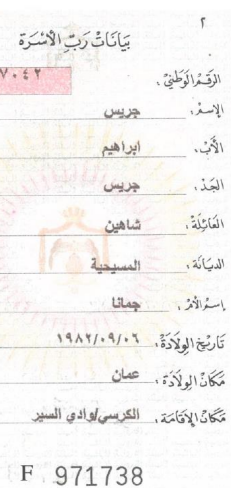 ٢
بيانات رب الأسرة
الرقم الوطني : ٧٠٤٢
الإسم : جريس
الأب : ابراهيم
الجد : جريس
العائلة : شاهين
الديانة : المسيحية
إسم الأم : جمانا
تاريخ الولادة : ١٩٨٢/٠٩/٠٦
مكان الولادة : عمان
مكان الإقامة : الكرسي/وادي السير
F 971738